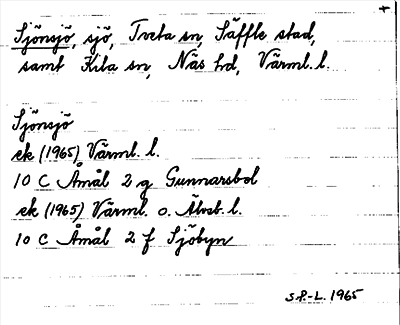 +
Sjönsjö, sjö, Tveta sn, Säffle stad,
samt Kila sn, Näs hd, Värml. l.
Sjönsjö
ek (1965) Värml. l.
10 C Åmål 2 g Gunnarsbol
ek (1965) Värml. o. Älvsb. l.
10 C Åmål 2 f Sjöbyn
S.P.-L. 1965